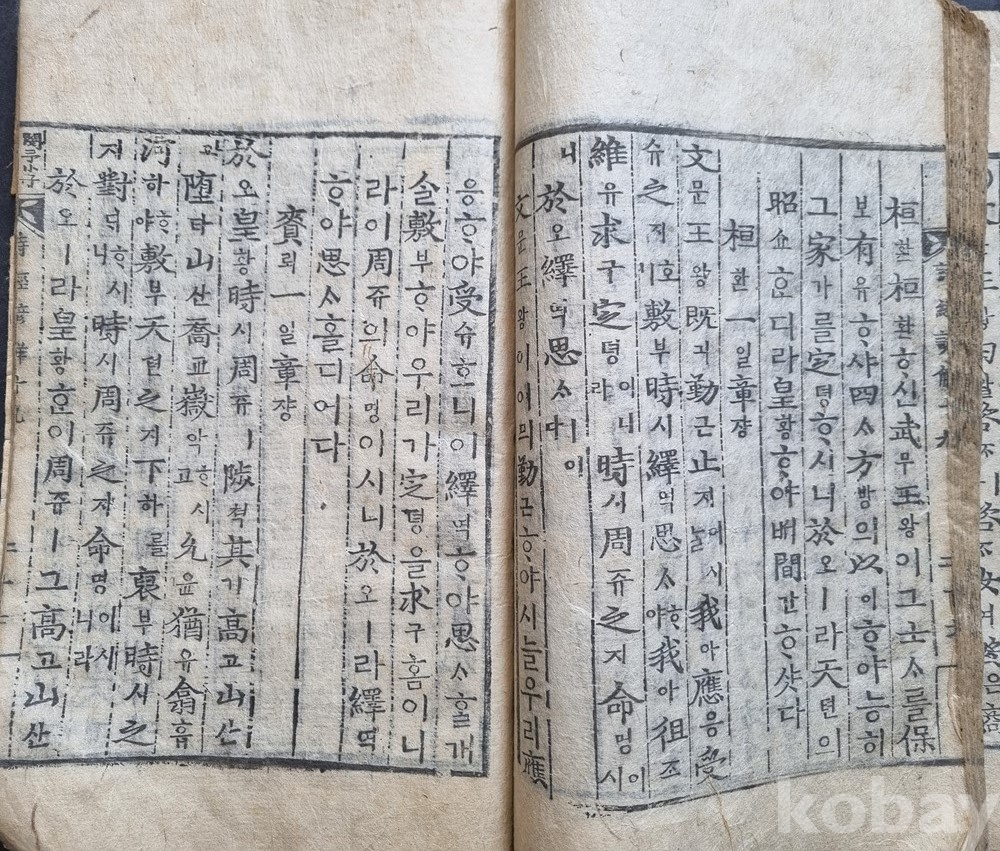 桓환桓환ᄒᆞ신武무王왕이그士ᄉᆞ를保
보有유ᄒᆞ샤四ᄉᆞ方방의以이ᄒᆞ야능히
그家가를定뎡ᄒᆞ시니於오ㅣ라天텬의
昭쇼ᄒᆞᆫ디라皇황ᄒᆞ야ᄡᅥ間간ᄒᆞ샷다
桓환一일章쟝
文문王왕既긔勤근止지어시ᄂᆞᆯ我아應응受
슈之지ᄒᆞ니敷부時시繹역思ᄉᆞᄒᆞ야我아徂조
維유求구定뎡이니라時시周쥬之지命명이시
니於오繹역思ᄉᆞㅣ다
文문王왕이이믜勤근ᄒᆞ야시늘우리應
응ᄒᆞ야受슈ᄒᆞ니이繹역ᄒᆞ야思ᄉᆞᄒᆞᆯ개
슬敷부ᄒᆞ야우리가定뎡을求구홈이니
라이周쥬의命명이시니於오ㅣ라繹역
ᄒᆞ야思ᄉᆞ홀디어다
賚뢰一일章쟝
於오皇황時시周쥬ㅣ陟쳑其기高고山산
墮타山산喬교嶽악ᄒᆞ시고允윤猶유翕흡
河하ᄒᆞ야敷부天텬之지下하를裒부時시之
지對ᄃᆡᄒᆞ시니時시周쥬之지命명이시니라
於오ㅣ라皇황ᄒᆞᆫ이周쥬ㅣ그高고山산
閔予小子
詩經諺解十九
kobay